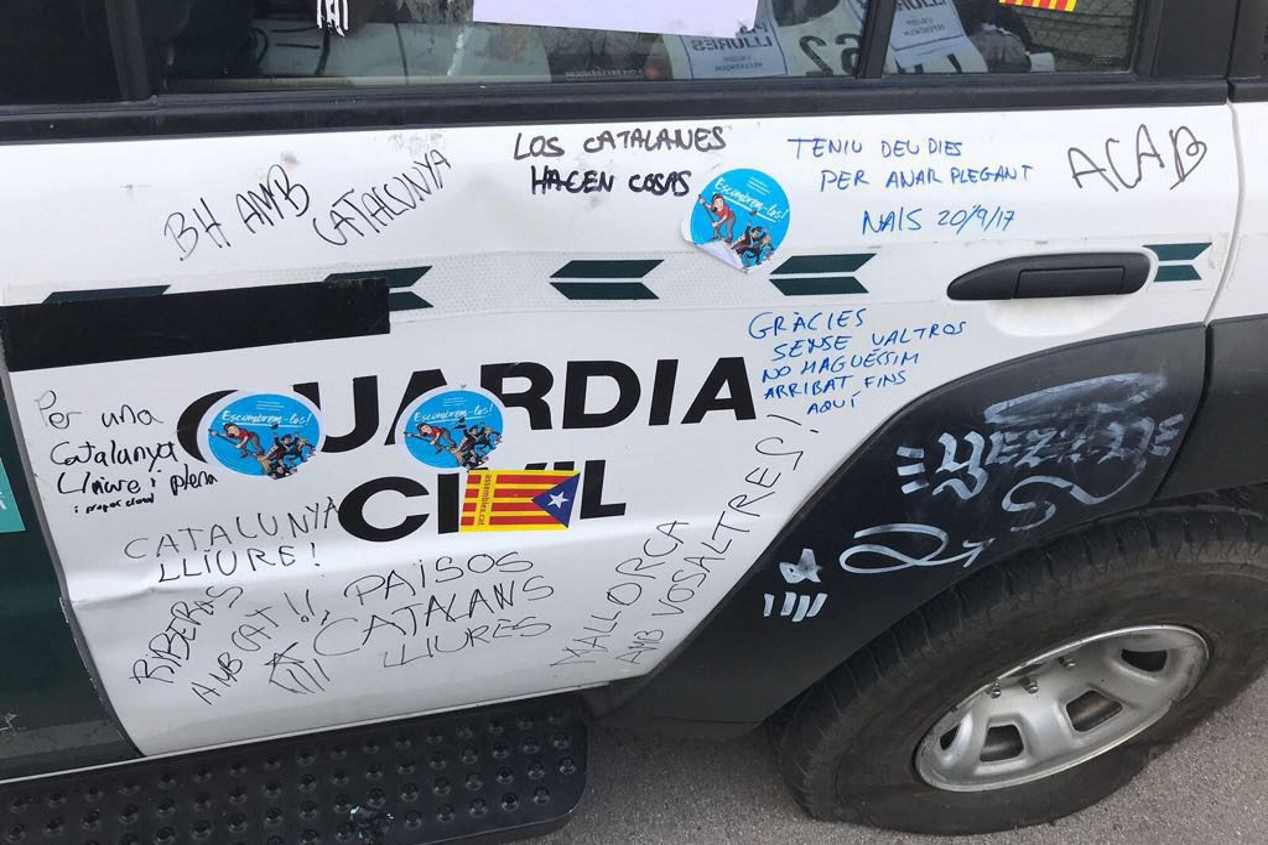 LLIURES
62
BH AMB
CATALUNYA
LOS CATALANES
HACEN COSAS
TENIU DEU DIES
PER ANAR PLEGANT
NAIS 20/9/17
ACAB
Escombrem-los!
GRÀCIES
SENSE VALTROS
NO HAGUÉSSIM
ARRIBAT FINS
AQUÍ
GUARDIA
CIVIL
Escombrem-los!
Escombrem-los!
assemblea.cat
Per una
Catalunya
Lliure i plena
CATALUNYA
LLIURE!
RIBERAS
AMB CAT!!
PAÏSOS
CATALANS
LLIURES
MALLORCA
AMB VOSALTRES!